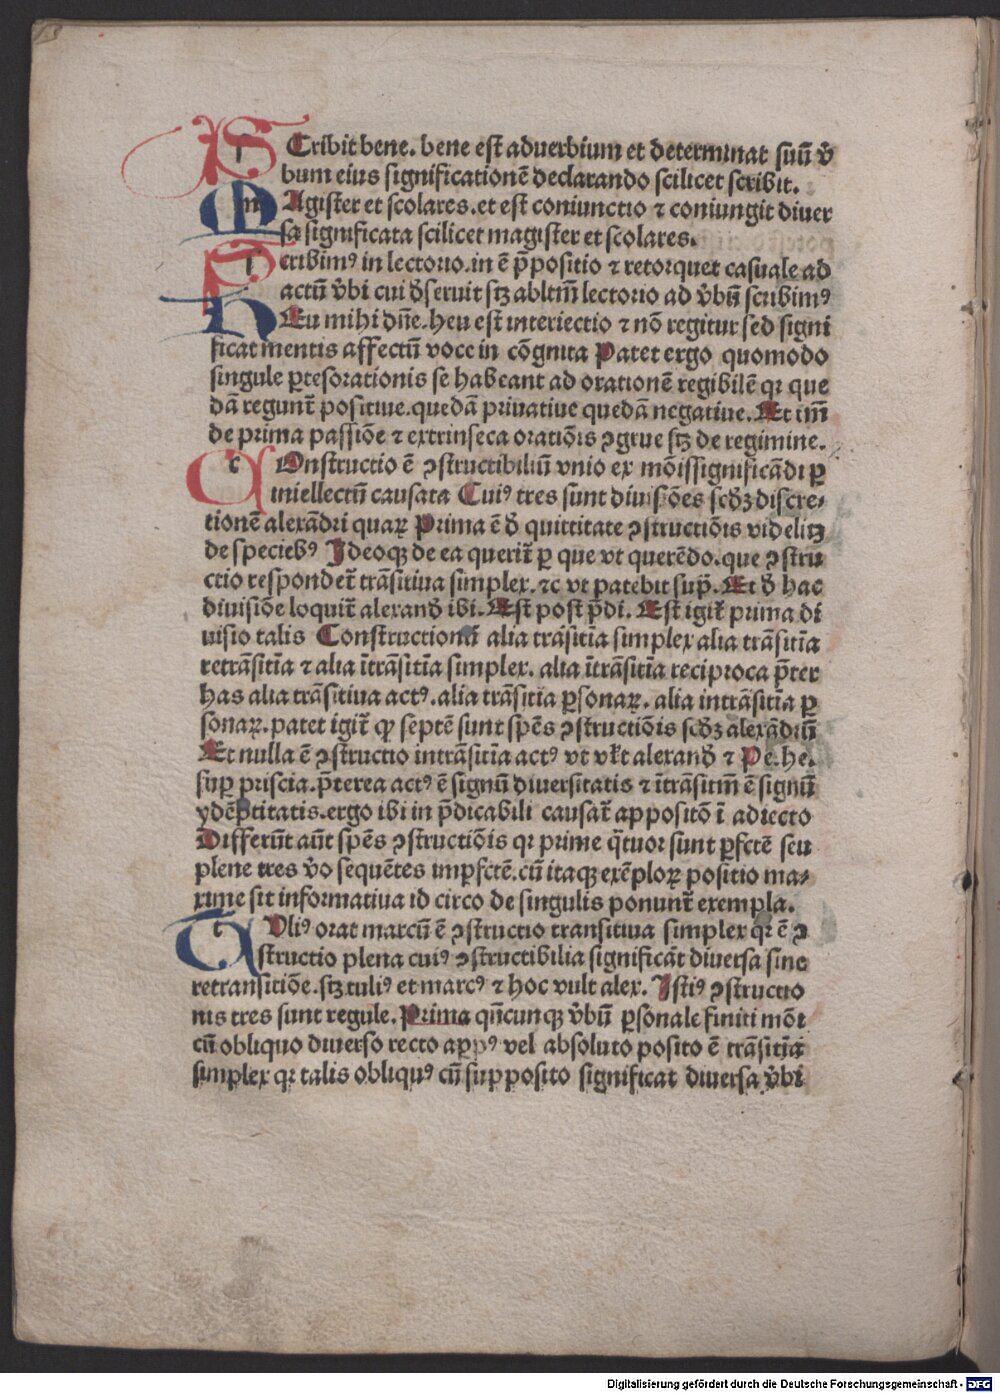 SCribit bene. bene est aduerbium et determinat suū v̄
bum eius significationē declarando scilicet scribit.
MAgister et scolares. et est coniunctio ⁊ coniungit diuer
sa significata scilicet magister et scolares.
Scribimꝰ in lectorio. in ē p̄positio ⁊ retorquet casuale ad
actū v̄bi cui d̄seruit stꝫ abltm̄ lectorio ad v̄bū scribimꝰ
HEu mihi dn̄e. heu est interiectio ⁊ nō regitur sed signi
ficat mentis affectū voce in cōgnita Patet ergo quomodo
singule ꝑtesorationis se habeant ad orationē regibilē qr que
dā regunt̄ positiue. quedā priuatiue quedā negatiue. Et im̄
de prima passiōe ⁊ extrinseca oratiōis ↄgrue stꝫ de regimine.
COnstructio ē ↄstructibiliū vnio ex mōissignificādi ꝑ
intellectū causata Cuiꝰ tres sunt diuisiōes scd̄ꝫ discre-
tionē alexādri quaꝝ Prima ē d̄ quittitate ↄstructiōis videlitꝫ
de speciebꝰ Ideoqꝫ de ea querit̄ ꝑ que vt querēdo. que ↄstru
ctio respondet̄ trāsitiua simplex. ⁊c vt patebit sup̄. Et d̄ hac
diuisiōe loquit̄ alexand̄ ibi. Est post p̄di. Est igit̄ prima di
uisio talis Constructionū alia trāsitīa simplex alia trāsitīa
retrāsitīa ⁊ alia ītrāsitīa simplex. alia ītrāsitīa reciproca p̄ter
has alia trāsitiua actꝰ. alia trāsitīa ꝑsonaꝝ. alia intrāsitīa ꝑ
sonaꝝ. patet igit̄ ꝙ septē sunt spēs ↄstructiōis scd̄ꝫ alexādrū
Et nulla ē ↄstructio intrāsitīa actꝰ vt vl̄t alexand̄ ⁊ Pe. he.
suꝑ priscia. p̄terea actꝰ ē signū diuersitatis ⁊ ītrāsitm̄ ē signū
ydēptitatis. ergo ibi in p̄dicabili causat̄ appositō ī adiecto
Differūt aūt spēs ↄstructiōis qr prime q̄tuor sunt ꝑfctē seu
plene tres v̄o sequētes imꝑfctē. cū itaqꝫ exēploꝝ positio ma-
xime sit informatiua id circo de singulis ponunt̄ exempla.
TUliꝰ orat marcū ē ↄstructio transitiua simplex qr ē ↄ
structio plena cuiꝰ ↄstructibilia significāt diuersa sine
retransitiōe. stꝫ tuliꝰ et marcꝰ ⁊ hoc vult alex. Istiꝰ ↄstructio
nis tres sunt regule. Prima qn̄cunqꝫ v̄bū ꝑsonale finiti mōi
cū obliquo diuerso recto appꝰ vel absoluto posito ē trāsitīa
simplex qr talis obliquꝰ cū supposito significat diuersa v̄bi
Digitalisierung gefördert durch die Deutsche Forschungsgemeinschaft - DFG